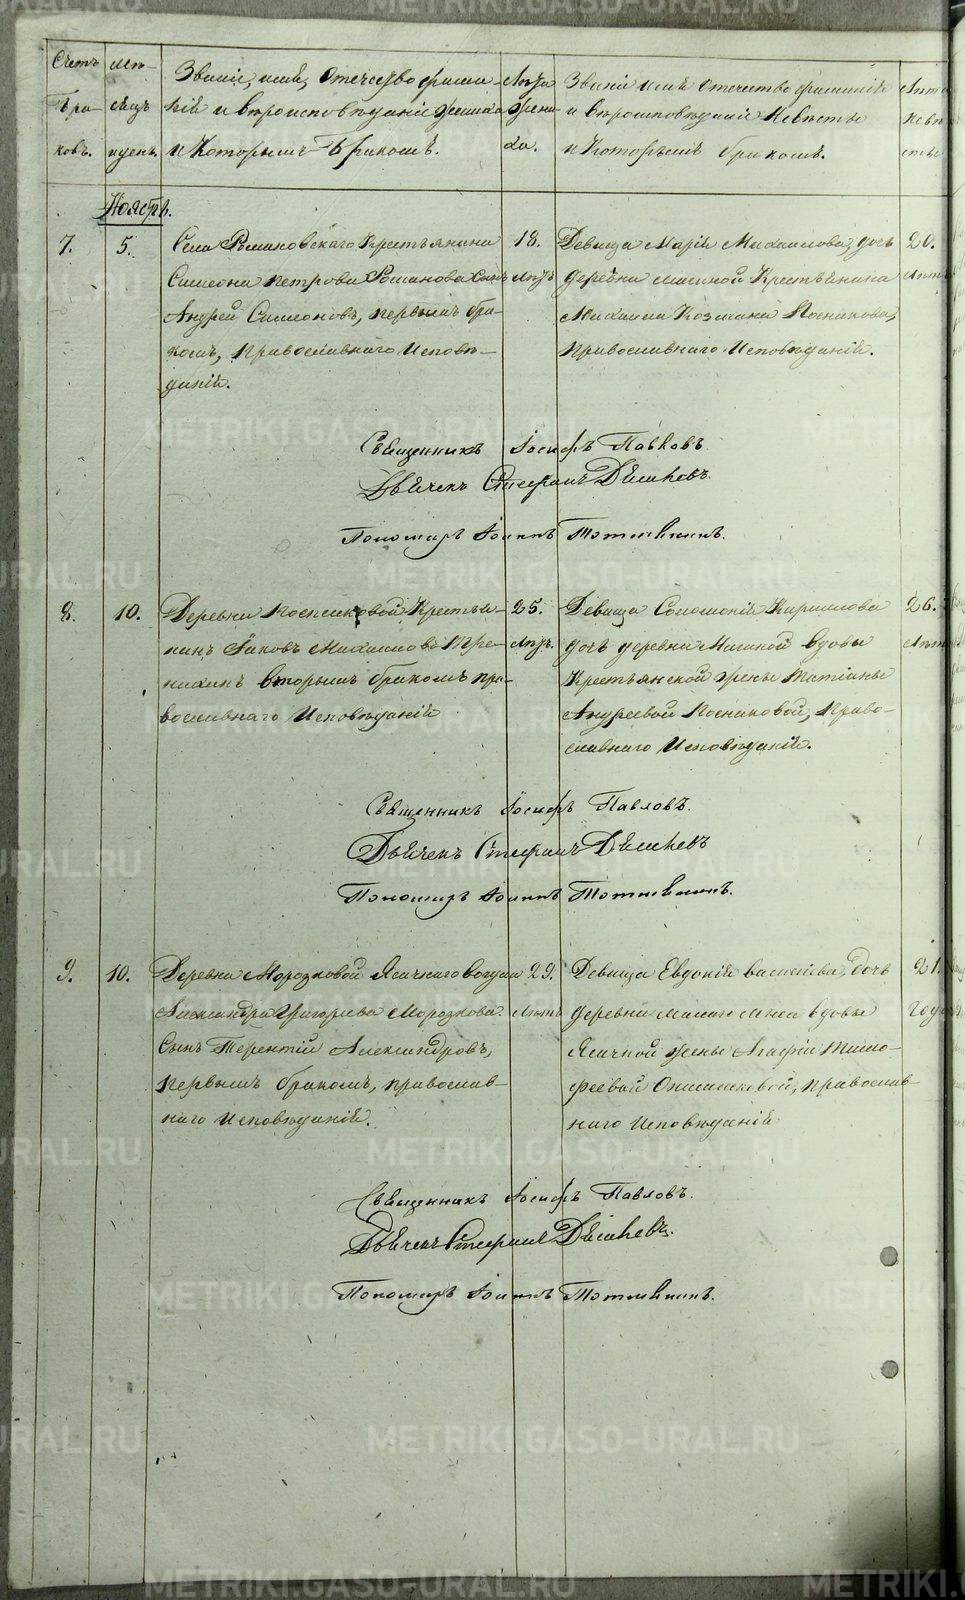 METRIKI.GASO-URAL.RU
Счетъ
бра
ковъ.
мѣ-
сяцъ
и день.
Званіе, имя, отечество фами-
лія и вѣроисповѣданіе жениха
и которымъ бракомъ.
Лѣта
жени-
ха.
Званіе имя отечество фамилія
и вѣроисповѣданіе невѣсты
и которымъ бракомъ.
Лѣта
невѣ
сты
Ноябрь.
7.
5.
Села Романовскаго Крестьянина
Симеона Петрова Романова сынъ
Андрей Симеоновъ, первымъ бра-
комъ, православнаго исповѣ-
данія.
18.
лѣтъ
Девица Марія Михаилова, дочь
деревни Крестьянина
Михаила Козмина Посникова,
православнаго исповѣданія.
20.
лѣтъ
Священникъ Іосифъ Павловъ
Дьячекъ Стефанъ
Пономарь Іоаннъ
8.
10.
Деревни Посниковой Крестья-
нинъ Іаковъ Михаиловъ Тре-
нихинъ вторымъ бракомъ пра-
вославнаго исповѣданія
25.
лѣтъ.
Девица Соломонія Кириллова
дочь деревни вдовы
Крестьянской жены Татіаны
Андреевой Посниковой, право-
славнаго исповѣданія.
26.
лѣтъ
Священникъ Іосифъ Павловъ.
Дьячекъ Стефанъ
Пономарь Іоаннъ
9.
10.
Деревни Морозковой Ясачнаго вогула
Александра Григорьева Морозкова
сынъ Терентій Александровъ,
первымъ бракомъ, православ-
наго исповѣданія.
29.
лѣтъ
Девица Евдокія Васильева, дочь
деревни вдовы
Ясачной жены Агафіи Тимо-
феевой православ-
наго исповѣданія
21.
года
Священникъ Іосифъ Павловъ.
Дьячекъ Стефанъ
Пономарь Іоаннъ